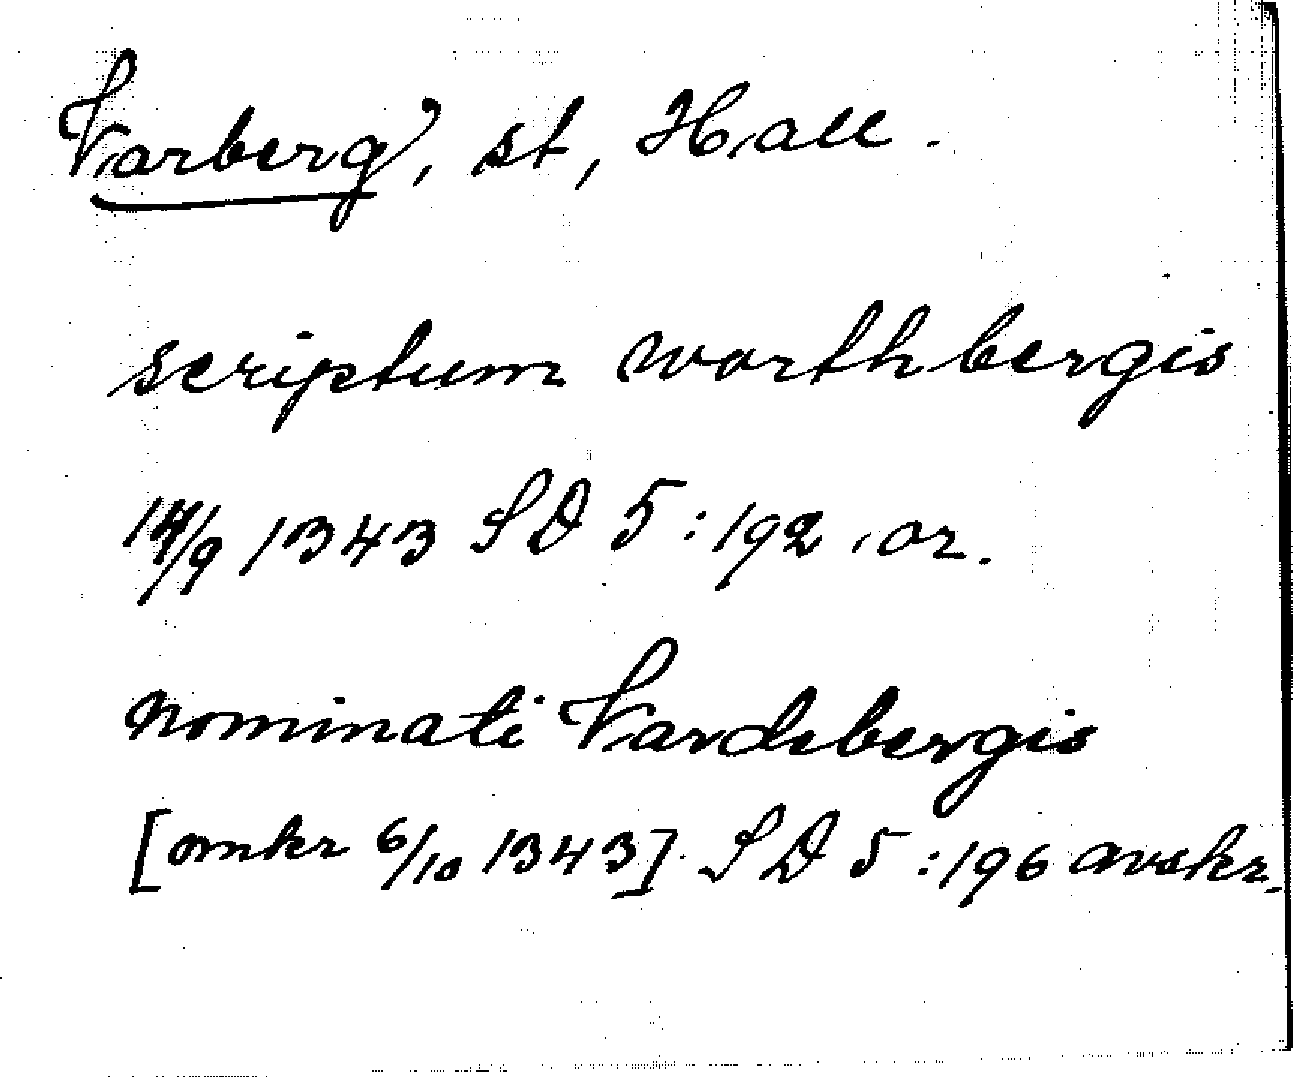 Varberg, st, Hall.
scriptum warthbergis
14/9 1343 SD 5:192, or.
nominati Vardebergis
[omkr 6/10 1343]. SD 5:196 avskr.